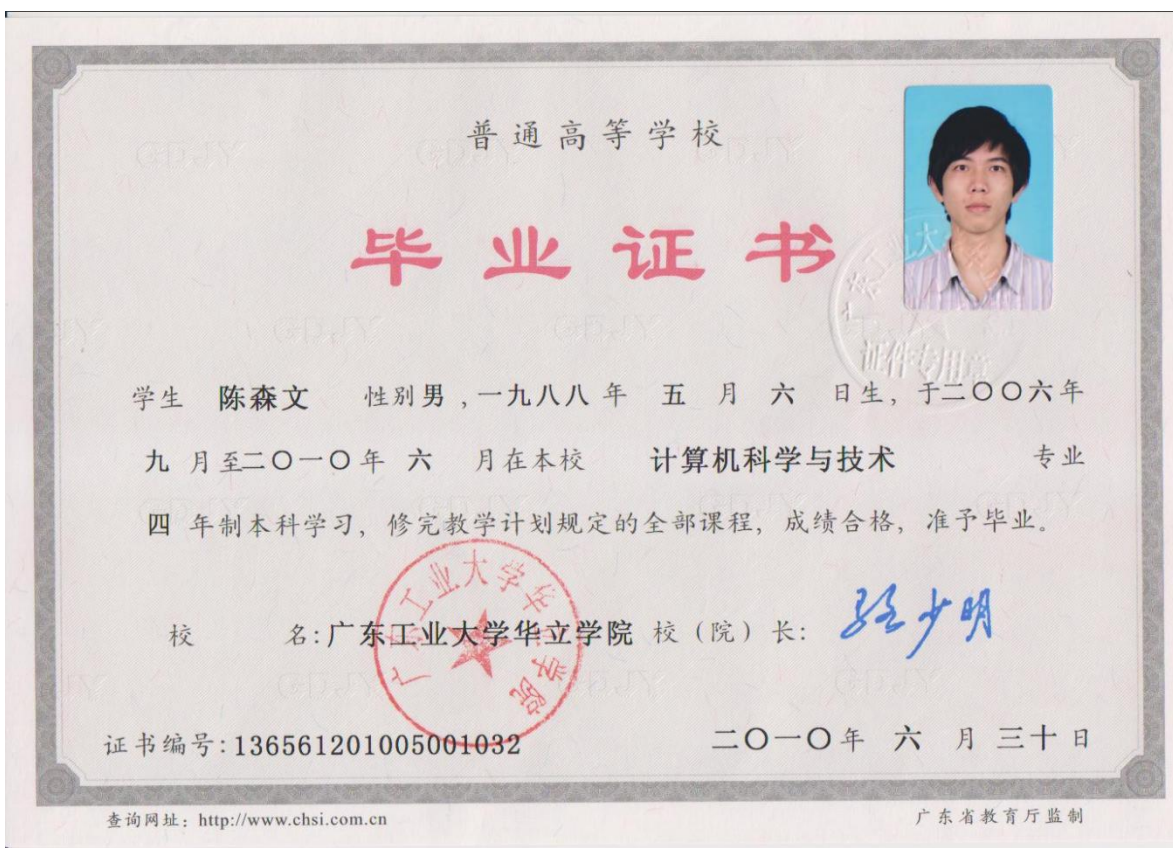 普通高等学校
毕业证书
学生 陈森文 性别男,一九八八年 五 月 六 日生, 于二〇〇六年
九 月至二〇一〇年 六 月在本校 计算机科学与技术 专业
四 年制本科学习, 修完教学计划规定的全部课程, 成绩合格, 准予毕业。
校 名:广东工业大学华立学院 校(院)长:
广东工业大学华立学院
证件专用章
证书编号:136561201005001032 二〇一〇年 六 月 三十 日
查询网址:http://www.chsi.com.cn 广东省教育厅监制